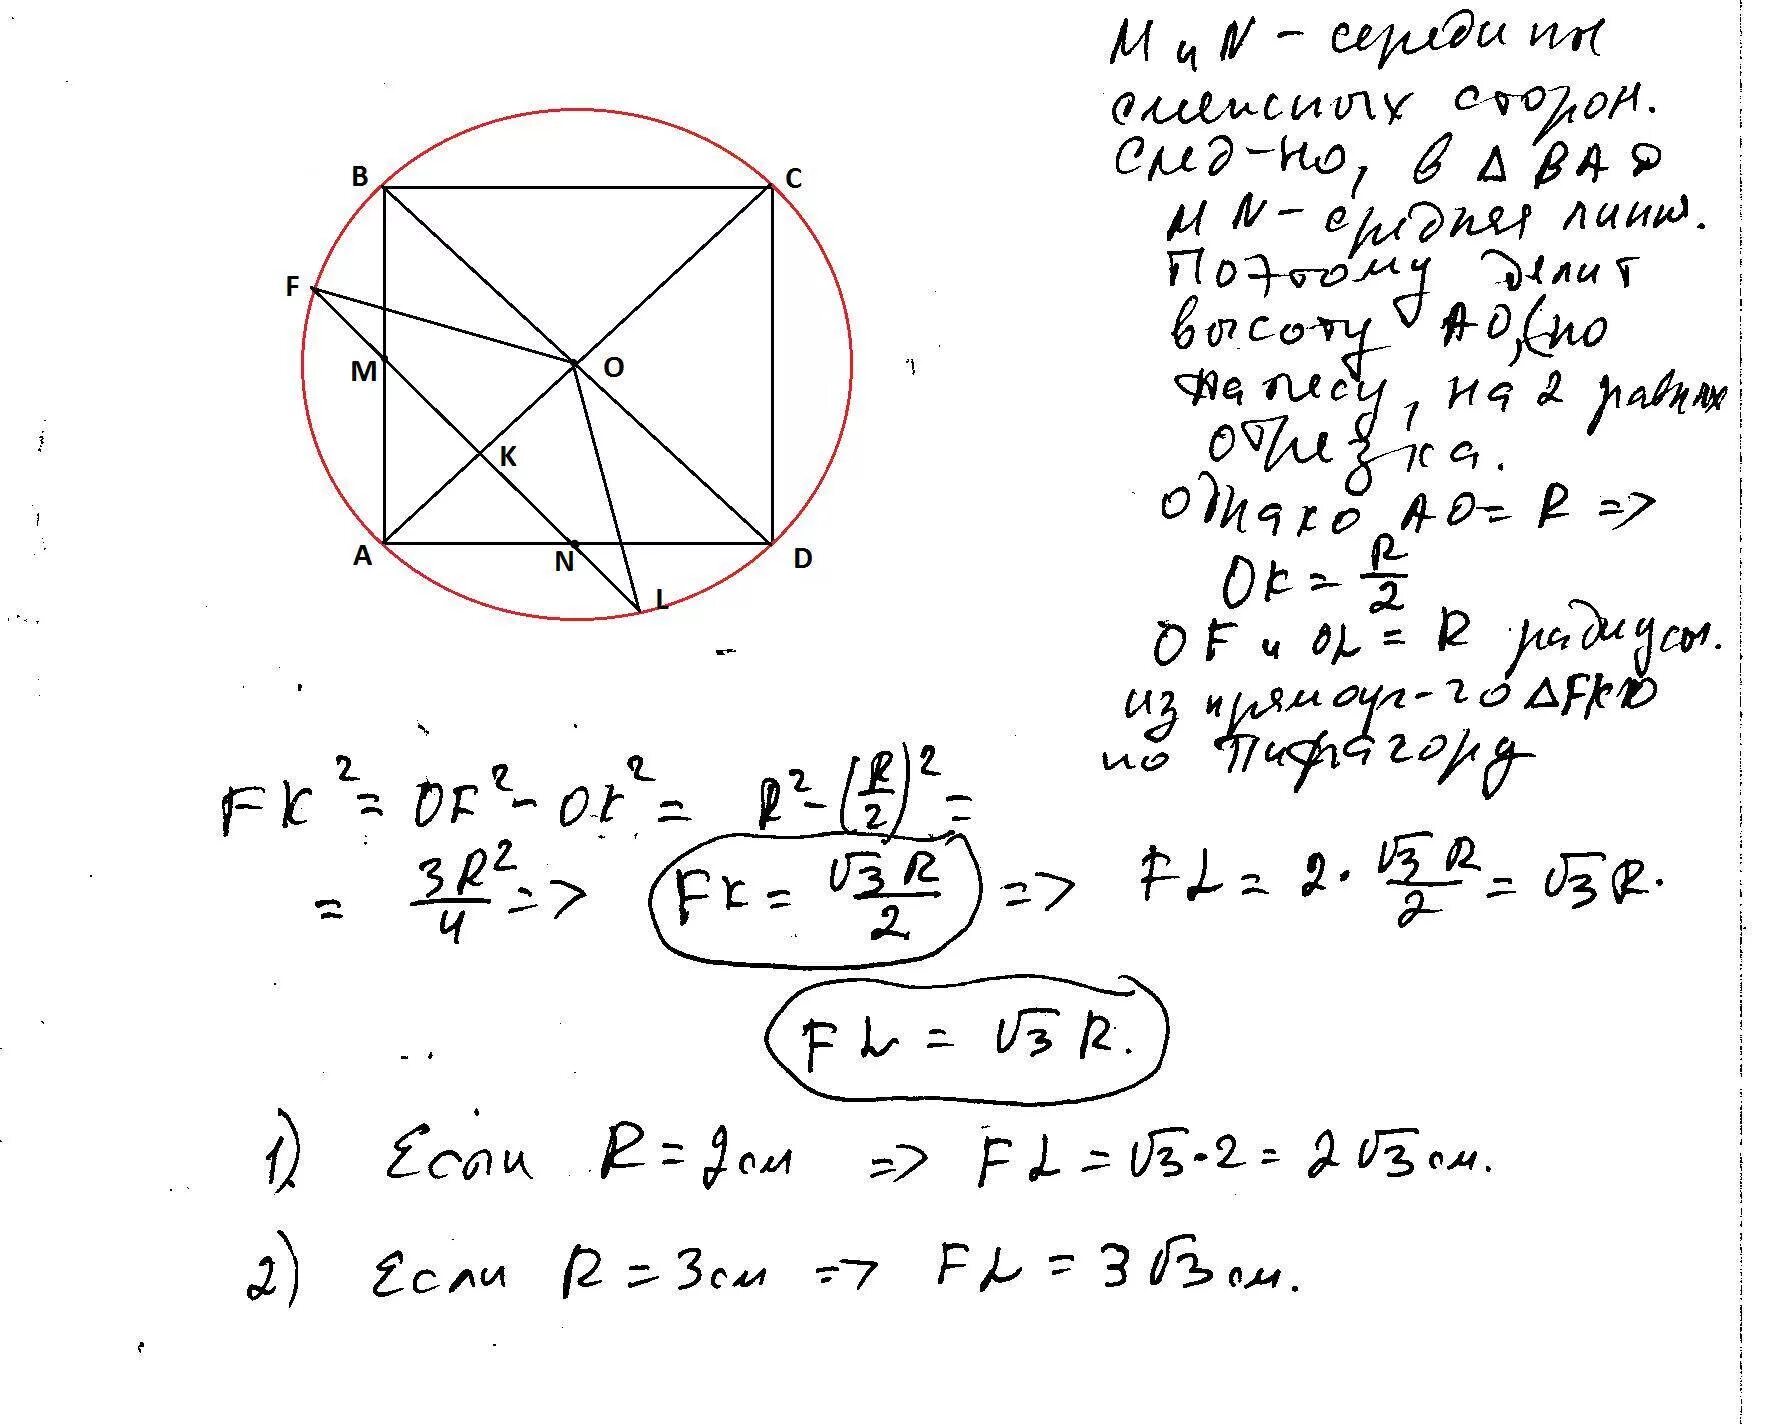 B
C
F
M
O
K
A
N
D
L
М и N - середины
смежных сторон.
След-но, в Δ BAD
MN - средняя линия.
Поэтому делит
высоту AO, (по
Фалесу, на 2 равных
отрезка.
Однако AO = R =>
OK = R/2
OF и OL = R радиусы.
из прямоуг-го ΔFKO
по Пифагору
FK² = OF² - OK² = R² - (R/2)² =
= 3R²/4 => FK = √3 R/2 => FL = 2 · √3 R/2 = √3 R.
FL = √3 R.
1) Если R = 2 см => FL = √3 · 2 = 2√3 см.
2) Если R = 3 см => FL = 3√3 см.